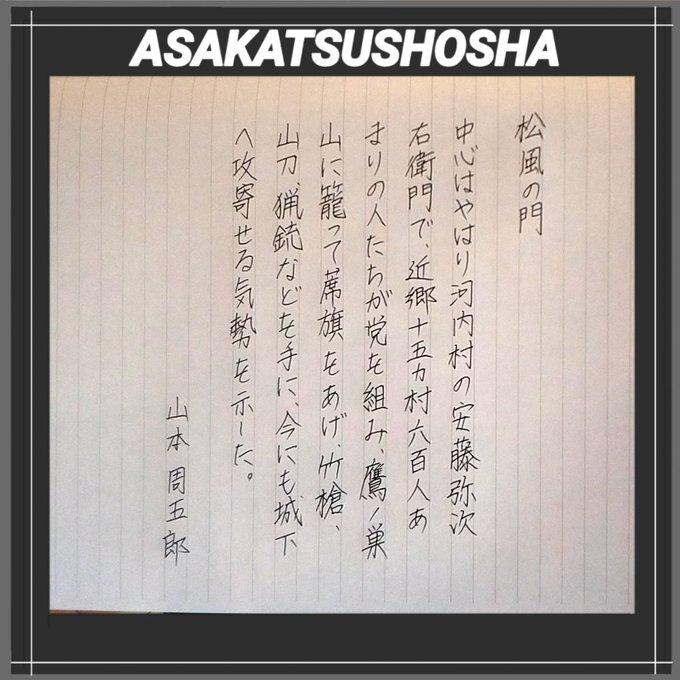 ASAKATSUSHOSHA
松風の門
中心はやはり河内村の安藤弥次
右衛門で、近郷十五カ村六百人あ
まりの人たちが党を組み、鷹ノ巣
山に籠って蓆旗をあげ、竹槍、
山刀、猟銃などを手に、今にも城下
へ攻寄せる気勢を示した。
山本周五郎